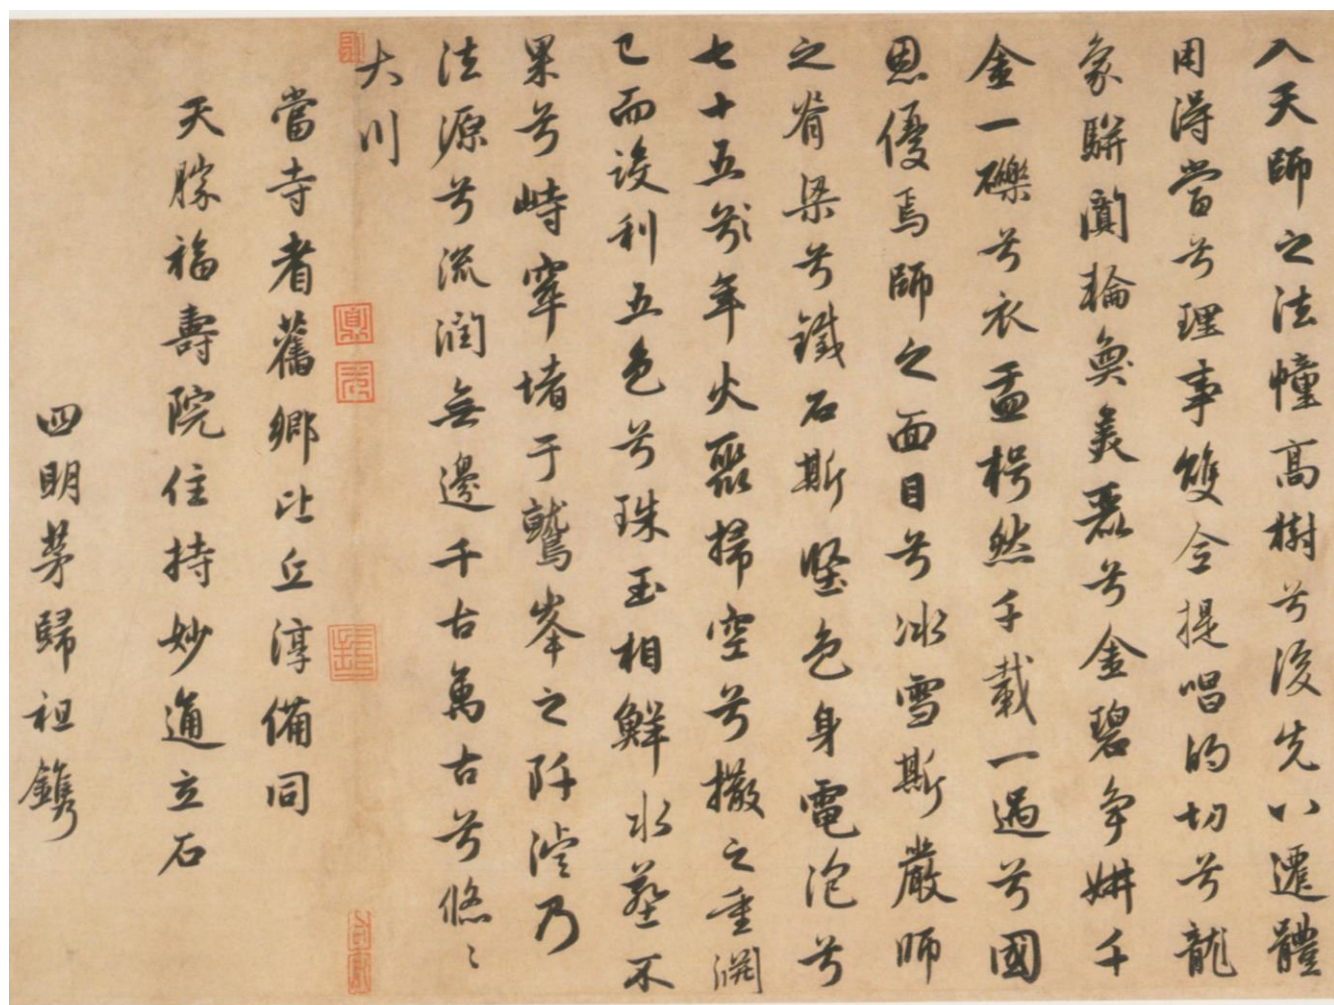 入天師之法幢高樹兮後先八遷體
用得當兮理事雙全提唱的切兮龍
象駢闐輪奐美麗兮金碧爭妍千
金一礫兮衣盂枵然千載一遇兮國
恩優焉師之面目兮冰雪斯嚴師
之脊梁兮鐵石斯堅色身電泡兮
七十五齡年火聚掃空兮撒之重淵
已而設利五色兮珠玉相鮮水塟不
果兮峙窣堵于鷲峯之阡濬乃
法源兮流潤無邊千古萬古兮悠〻
大川
當寺者舊鄉比丘淳備同
天勝福壽院住持妙通立石
四明茅歸祖鐫